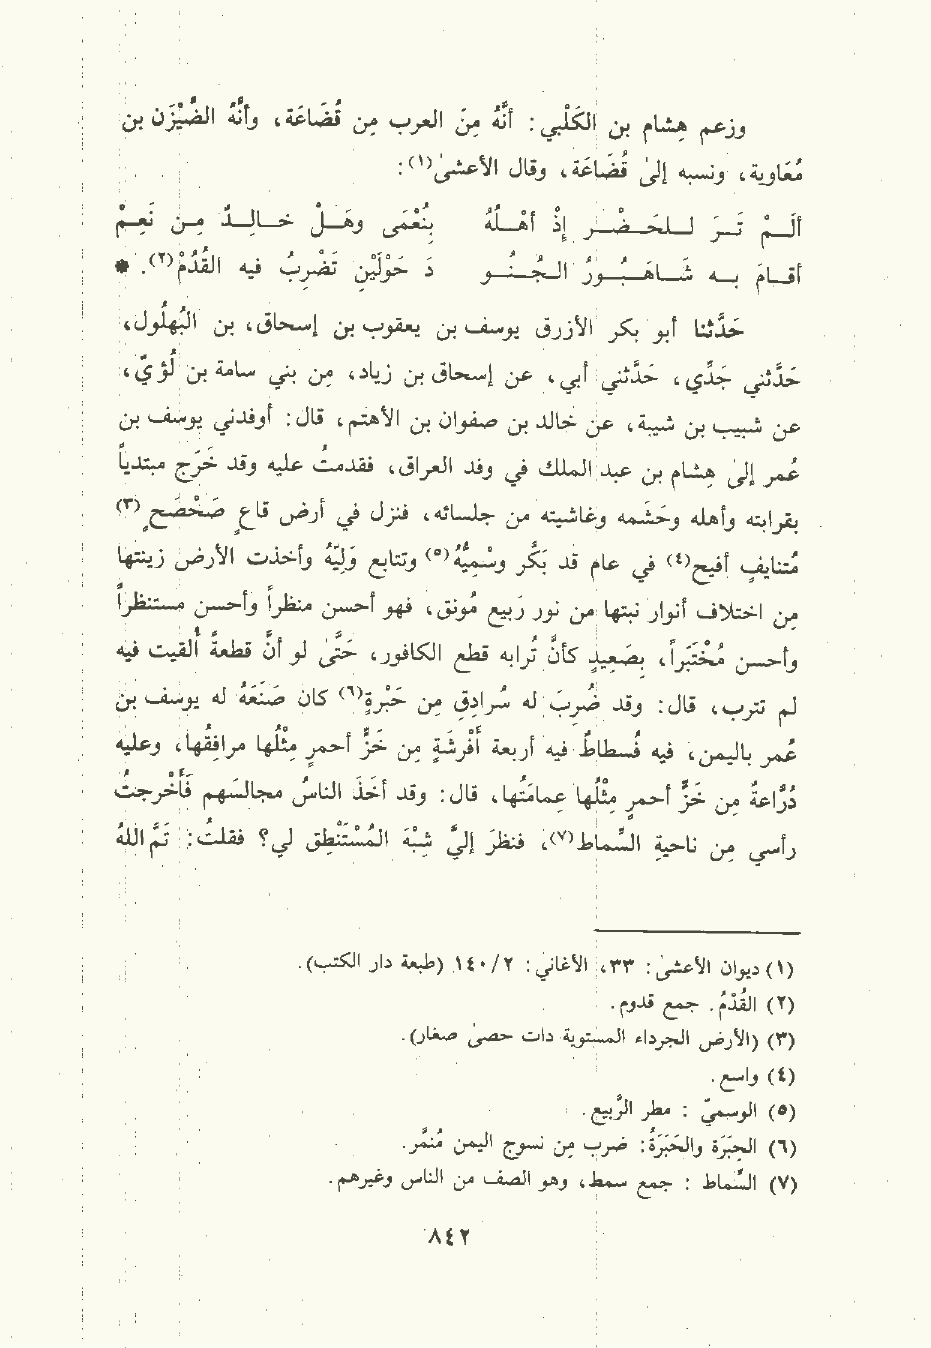 وزعم هِشام بن الكَلْبي: أنَّهُ مِنَ العرب مِن قُضَاعَة، وأنَّهُ الضَّيْزَن بن
مُعَاوية، ونسبه إلىٰ قُضَاعَة، وقال الأعشىٰ(١):
ألَــمْ تَــرَ لــلــحَــضْــر إذ أهْــلُهُ بنُعْمَى وهَــلْ خــالِــدٌ مِــن نَعِــمْ
أقــامَ بــه شَــاهَــبُــورُ الــجُــنُــو دَ حَوْلَيْنِ تَضْرِبُ فيه القُدُمْ(٢). *
حَدَّثنا أبو بكر الأزرق يوسف بن يعقوب بن إسحاق، بن البُهلُول،
حَدَّثني جَدِّي، حَدَّثني أبي، عن إسحاق بن زياد، من بني سامة بن لُؤيّ،
عن شبيب بن شيبة، عن خالد بن صفوان بن الأهتم، قال: أوفدني يوسف بن
عُمر إلىٰ هِشام بن عبد الملك في وفد العراق، فقدمتُ عليه وقد خَرَج مبتدياً
بقرابته وأهله وحَشَمه وغاشيته من جلسائه، فنزل في أرض قاعٍ صَحْصَحٍ(٣)
مُتنايفٍ أفيح(٤) في عام قد بَكَّر وسْمِيُّهُ(٥) وتتابع وَلِيّهُ وأخذت الأرض زينتها
مِن اختلاف أنوار نبتها من نور رَبيع مُونق، فهو أحسن منظراً وأحسن مستنظراً
وأحسن مُخْتَبَراً، بصَعِيدٍ كأنَّ تُرابه قطع الكافور، حَتَّىٰ لو أنَّ قطعةً أُلقيت فيه
لم تترب، قال: وقد ضُرِبَ له سُرادِقٍ مِن حَبْرة(٦) كان صَنَعَهُ له يوسف بن
عُمر باليمن، فيه فُسطاطٌ فيه أربعة أفْرشَةٍ من خَزٍّ أحمرٍ مِثْلُها مرافِقُها، وعليه
دُرَّاعةٌ مِن خَزٍّ أحمرٍ مِثْلُها عمامَتُها، قال: وقد أخَذَ الناسُ مجالسَهم فَأَخْرجتُ
رأسي مِن ناحيةِ السِّماط(٧)، فنظرَ إليَّ شِبْهَ المُسْتَنْطِق لي؟ فقلتُ: تَمَّ اللهُ
(١) ديوان الأعشىٰ: ٣٣، الأغاني: ٢/ ١٤٠ (طبعة دار الكتب).
(٢) القُدْمُ. جمع قدوم.
(٣) (الأرض الجرداء المستوية ذات حصىٰ صغار).
(٤) واسع.
(٥) الوسميّ : مطر الرَّبيع.
(٦) الحِبَرَة والحَبَرَةُ: ضرب مِن نسوج اليمن مُنمَّر.
(٧) السِّماط : جمع سمط، وهو الصف من الناس وغيرهم.
٨٤٢